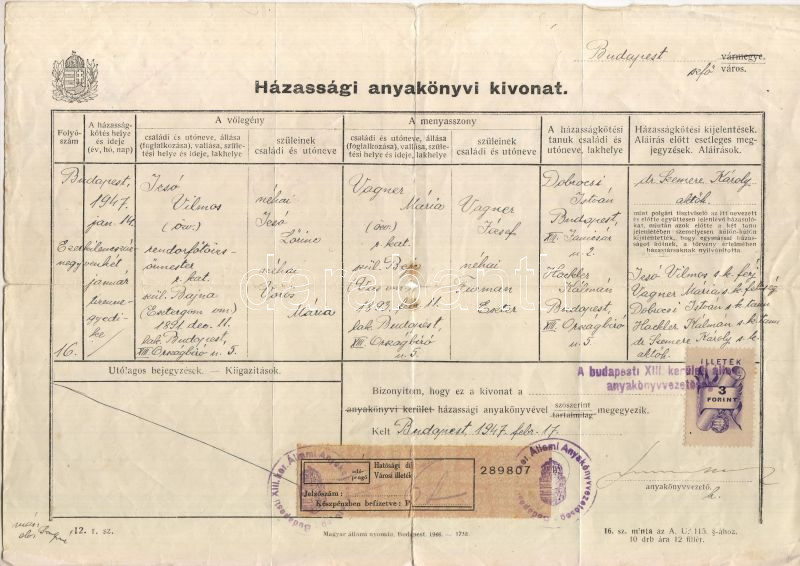 Budapest vármegye.
város.
Házassági anyakönyvi kivonat.
Folyó-
szám
A házasság-
kötés helye
és ideje
(év, hó, nap)
A vőlegény
családi és utóneve, állása
(foglalkozása), vallása, szüle-
tési helye és ideje, lakhelye
szüleinek
családi és utóneve
A menyasszony
családi és utóneve, állása
(foglalkozása), vallása, szüle-
tési helye és ideje, lakhelye
szüleinek
családi és utóneve
A házasságkötési
tanuk családi és
utóneve, lakhelye
Házasságkötési kijelentések.
Aláírás előtt esetleges meg-
jegyzések. Aláírások.
16.
Budapest,
1947.
jan. 14.
Ezerkilencszáz-
negyvenhét
január
tizenne-
gyedi-
ke
Jesó
Vilmos
(özv.)
r. kat.
szül. Bajna
(Esztergom vm)
1891. dec. 11.
lak. Budapest,
XIII. Országbíró
u. 5.
néhai
Jesó
néhai
Vörös
Mária
Vagner
Mária
(özv.)
r. kat.
szül.
lak. Budapest,
XIII. Országbíró
u. 5.
Vagner
József
néhai
Furman
Eszter
Dobrocsi
István
Budapest,
u. 2.
Hackler
Kálmán
Budapest,
XIII. Országbíró
u. 5.
dr. Szemere Károly
aktók.
mint polgári tisztviselő az itt nevezett
és előtte együttesen jelenlévő házasuló-
kat, miután azok előtte a két tanu
jelenlétében személyesen külön-külön
kijelentették, hogy egymással házas-
ságot kötnek, a törvény értelmében
házastársaknak nyilvánította.
Jesó Vilmos s.k. férj
Vagner Mária s.k. feleség
Dobrocsi István s.k. tanu
Hackler Kálmán s.k. tanu
dr. Szemere Károly s.k.
aktók.
darabanth.com
Utólagos bejegyzések. — Kiigazítások.
A budapesti XIII. kerületi állami
anyakönyvvezetőség
Bizonyítom, hogy ez a kivonat a
anyakönyvi kerület házassági anyakönyvével szószerint megegyezik.
tartalmilag
Kelt Budapest, 1947. febr. 17.
ILLETÉK
3
FORINT
Hatósági dí
Városi illeték
289807
Jelzőszám:
Készpénzben befizetve: P
Budapesti XIII. ker. Állami Anyakönyvvezetőség
anyakönyvvezető.
h.
12. r. sz.
Magyar állami nyomda, Budapest. 1946. — 1752.
16. sz. minta az A. U. 115. §-ához.
10 drb ára 12 fillér.